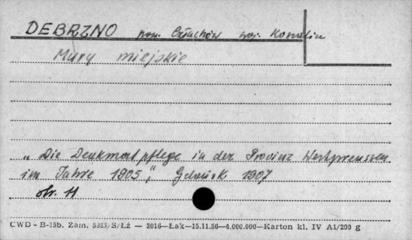 DEBRZNO pow. Człuchów woj. Koszalin
Mury miejskie
„Die Denkmalpflege in der Provinz Westpreussen
im Jahre 1905", Gdańsk 1907
str. 11
CWD - B-15b. Zam. 5353/S/Łź — 2016—Łak—15.11.56—4.000.000—Karton kl. IV A1/200 g